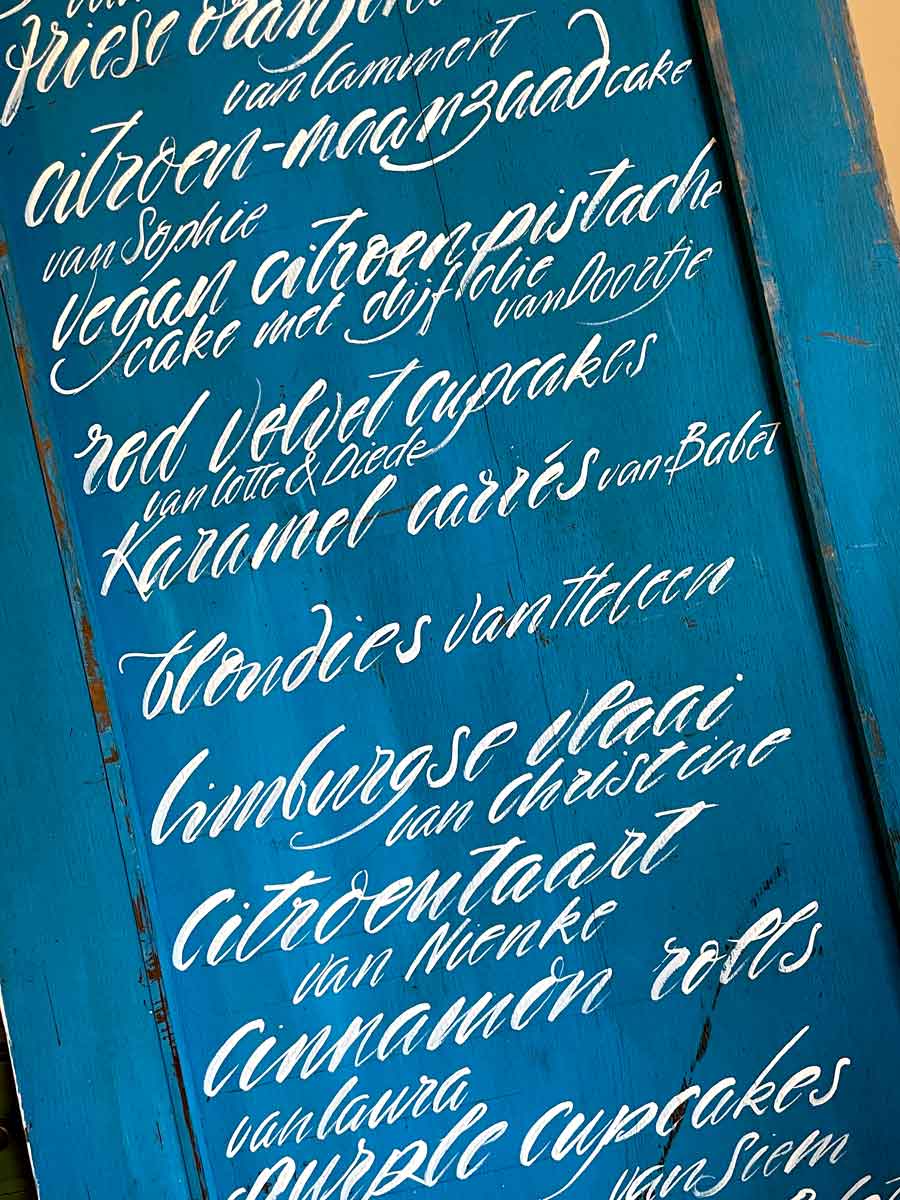 van
friese oranje
van Lammert
citroen-maanzaad cake
van Sophie
vegan citroen pistache
cake met olijfolie
van Doortje
red velvet cupcakes
van Lotte & Diede
Karamel carrés van Babet
blondies van Heleen
limburgse vlaai
van Christine
citroentaart
van Nienke
cinnamon rolls
van Laura
purple cupcakes
van Siem